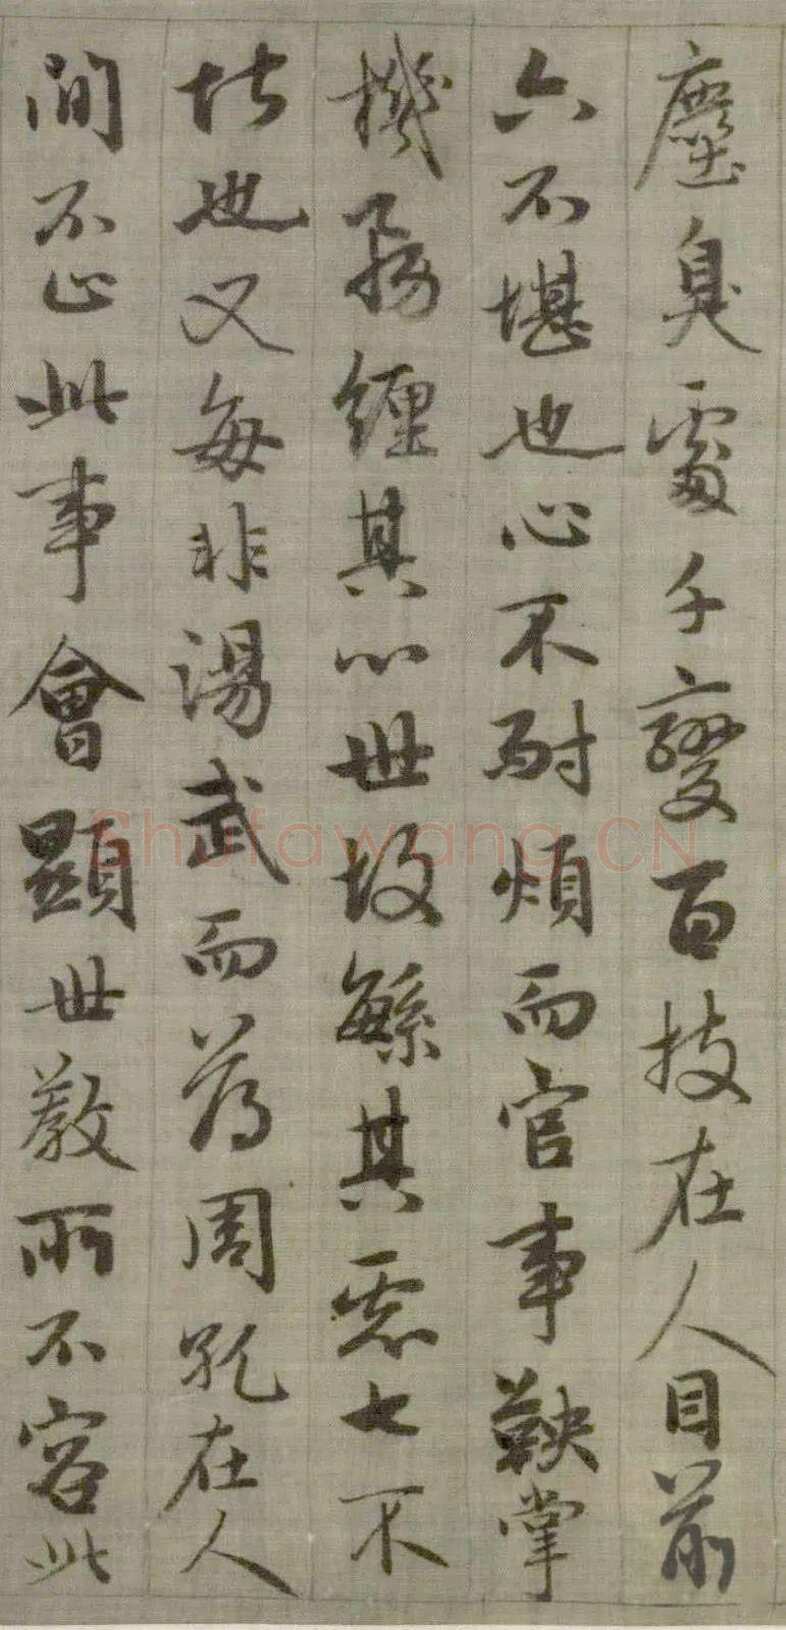 塵臭處千變百技在人目前
六不堪也心不耐煩而官事鞅掌
機務纏其心世故繁其慮七不
堪也又每非湯武而薄周孔在人
間不止此事會顯世教所不容此
Shufawang.CN